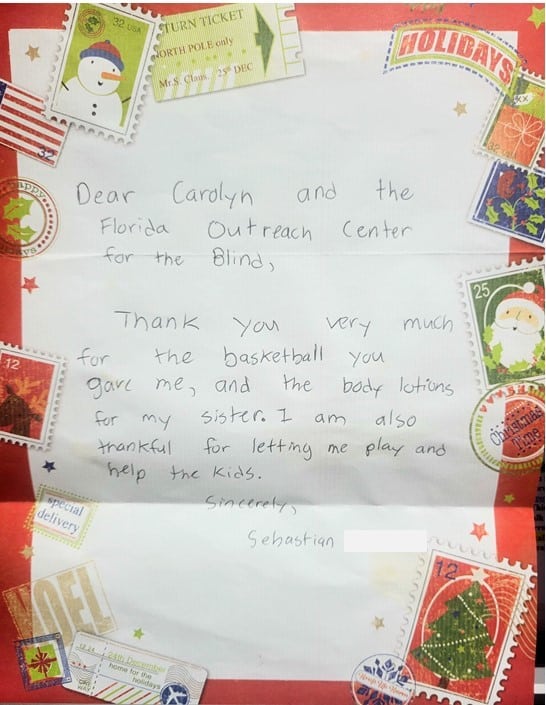 32 USA
TURN TICKET
NORTH POLE only
Mr.S. Claus, 25th DEC
HOLIDAYS
32
happy
12
25
Christmas
Time
Dear Carolyn and the
Florida Outreach Center
for the Blind,
Thank you very much
for the basketball you
gave me, and the body lotions
for my sister. I am also
thankful for letting me play and
help the kids.
Sincerely,
Sebastian
special
delivery
NOEL
12 24
24th December
home for the
holidays
WAY
12